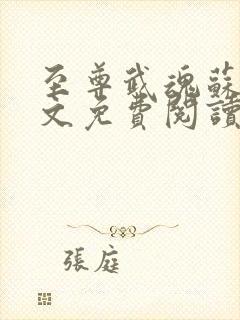 至尊武魂蘇
文免費閱讀
張庭